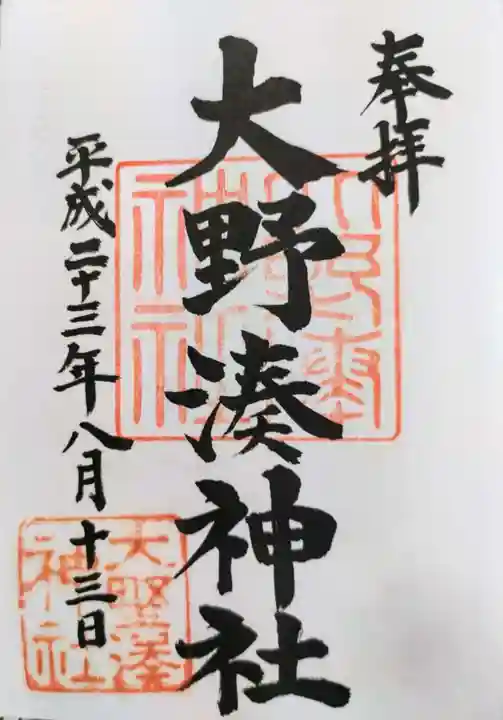 奉拝
大野湊神社
平成二十三年八月十三日
大野湊
神社